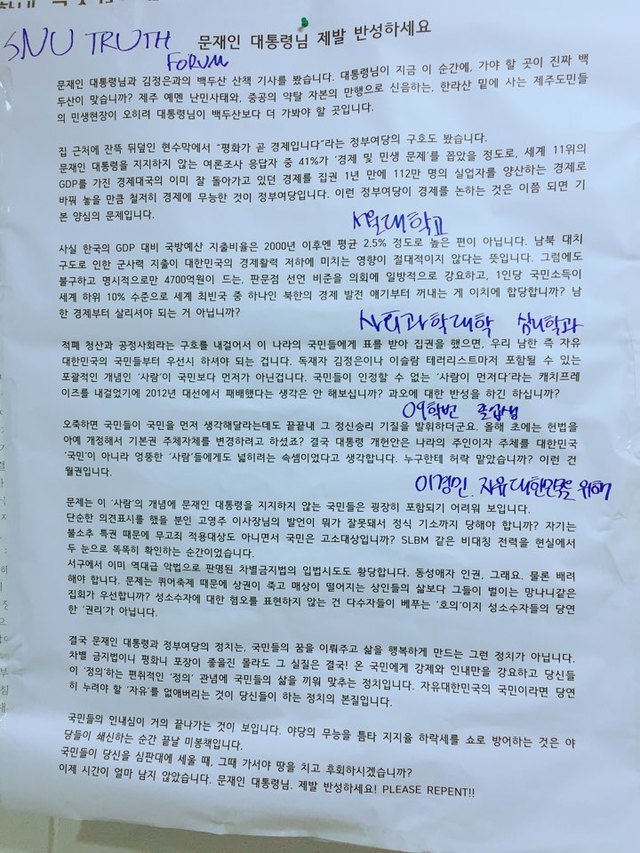 SNU TRUTH FORUM
문재인 대통령님 제발 반성하세요
문재인 대통령님과 김정은과의 백두산 산책 기사를 봤습니다. 대통령님이 지금 이 순간에, 가야 할 곳이 진짜 백
두산이 맞습니까? 제주 예멘 난민사태와, 중공의 약탈 자본의 만행으로 신음하는, 한라산 밑에 사는 제주도민들
의 민생현장이 오히려 대통령님이 백두산보다 더 가봐야 할 곳입니다.
집 근처에 잔뜩 뒤덮인 현수막에서 "평화가 곧 경제입니다"라는 정부여당의 구호도 봤습니다.
문재인 대통령을 지지하지 않는 여론조사 응답자 중 41%가 '경제 및 민생 문제'를 꼽았을 정도로, 세계 11위의
GDP를 가진 경제대국의 이미 잘 돌아가고 있던 경제를 집권 1년 만에 112만 명의 실업자를 양산하는 경제로
바꿔 놓을 만큼 철저히 경제에 무능한 것이 정부여당입니다. 이런 정부여당이 경제를 논하는 것은 이쯤 되면 기
본 양심의 문제입니다.
서울대학교
사실 한국의 GDP 대비 국방예산 지출비율은 2000년 이후엔 평균 2.5% 정도로 높은 편이 아닙니다. 남북 대치
구도로 인한 군사력 지출이 대한민국의 경제활력 저하에 미치는 영향이 절대적이지 않다는 뜻입니다. 그럼에도
불구하고 명시적으로만 4700억원이 드는, 판문점 선언 비준을 의회에 일방적으로 강요하고, 1인당 국민소득이
세계 하위 10% 수준으로 세계 최빈국 중 하나인 북한의 경제 발전 얘기부터 꺼내는 게 이치에 합당합니까? 남
한 경제부터 살리셔야 되는 거 아닙니까?
사회과학대학 심리학과
적폐 청산과 공정사회라는 구호를 내걸어서 이 나라의 국민들에게 표를 받아 집권을 했으면, 우리 남한 즉 자유
대한민국의 국민들부터 우선시 하셔야 되는 겁니다. 독재자 김정은이나 이슬람 테러리스트마저 포함될 수 있는
포괄적인 개념인 '사람'이 국민보다 먼저가 아닌겁니다. 국민들이 인정할 수 없는 '사람이 먼저다'라는 캐치프레
이즈를 내걸었기에 2012년 대선에서 패배했다는 생각은 안 해보십니까? 과오에 대한 반성을 하긴 하십니까?
09학번 졸업생
오죽하면 국민들이 국민을 먼저 생각해달라는데도 끝끝내 그 정신승리 기질을 발휘하더군요. 올해 초에는 헌법을
아예 개정해서 기본권 주체자체를 변경하려고 하셨죠? 결국 대통령 개헌안은 나라의 주인이자 주체를 대한민국
'국민'이 아니라 엉뚱한 '사람'들에게도 넓히려는 속셈이었다고 생각합니다. 누구한테 허락 맡았습니까? 이런 건
월권입니다.
이경민. 자유대한민국을 위해
문제는 이 '사람'의 개념에 문재인 대통령을 지지하지 않는 국민들은 굉장히 포함되기 어려워 보입니다.
단순한 의견표시를 했을 분인 고영주 이사장님의 발언이 뭐가 잘못돼서 정식 기소까지 당해야 합니까? 자기는
불소추 특권 때문에 무고죄 적용대상도 아니면서 국민은 고소대상입니까? SLBM 같은 비대칭 전력을 현실에서
두 눈으로 똑똑히 확인하는 순간이었습니다.
서구에서 이미 역대급 악법으로 판명된 차별금지법의 입법시도도 황당합니다. 동성애자 인권, 그래요. 물론 배려
해야 합니다. 문제는 퀴어축제 때문에 상권이 죽고 매상이 떨어지는 상인들의 삶보다 그들이 벌이는 망나니같은
집회가 우선합니까? 성소수자에 대한 혐오를 표현하지 않는 건 다수자들이 베푸는 '호의'이지 성소수자들의 당연
한 '권리'가 아닙니다.
결국 문재인 대통령과 정부여당의 정치는, 국민들의 꿈을 이뤄주고 삶을 행복하게 만드는 그런 정치가 아닙니다.
차별 금지법이니 평화니 포장이 좋을진 몰라도 그 실질은 결국! 온 국민에게 강제와 인내만을 강요하고 당신들
이 '정의'하는 편취적인 '정의' 관념에 국민들의 삶을 끼워 맞추는 정치입니다. 자유대한민국의 국민이라면 당연
히 누려야 할 '자유'를 없애버리는 것이 당신들이 하는 정치의 본질입니다.
국민들의 인내심이 거의 끝나가는 것이 보입니다. 야당의 무능을 틈타 지지율 하락세를 쇼로 방어하는 것은 야
당들이 쇄신하는 순간 끝날 미봉책입니다.
국민들이 당신을 심판대에 세울 때, 그때 가서야 땅을 치고 후회하시겠습니까?
이제 시간이 얼마 남지 않았습니다. 문재인 대통령님. 제발 반성하세요! PLEASE REPENT!!